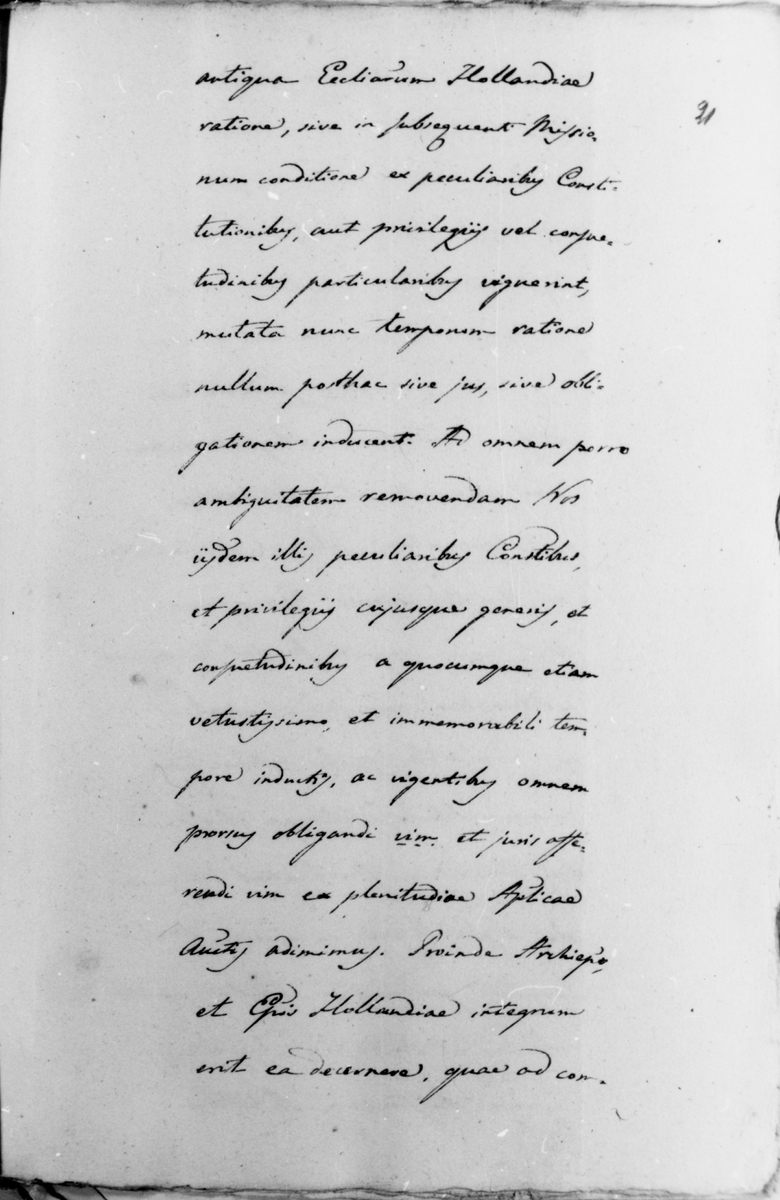 21
antiqua Eccliarum Hollandiae
ratione, sive in subsequenti Missio-
num conditione ex peculiaribus Consti-
tutionibus, aut privilegiis vel consue-
tudinibus particularibus viguerint,
mutata nunc temporum ratione
nullum posthac sive jus, sive obli-
gationem inducent. Ad omnem porro
ambiguitatem removendam Nos
iisdem illis peculiaribus Constibus,
et privilegiis cujusque generis, et
consuetudinibus a quocumque etiam
vetustissimo, et immemorabili tem-
pore inductis, ac vigentibus omnem
prorsus obligandi vim et juris affe-
rendi vim ex plenitudine Aplicae
Auctis adimimus. Proinde Archiepo,
et Epis Hollandiae integrum
erit ea decernere, quae ad com-